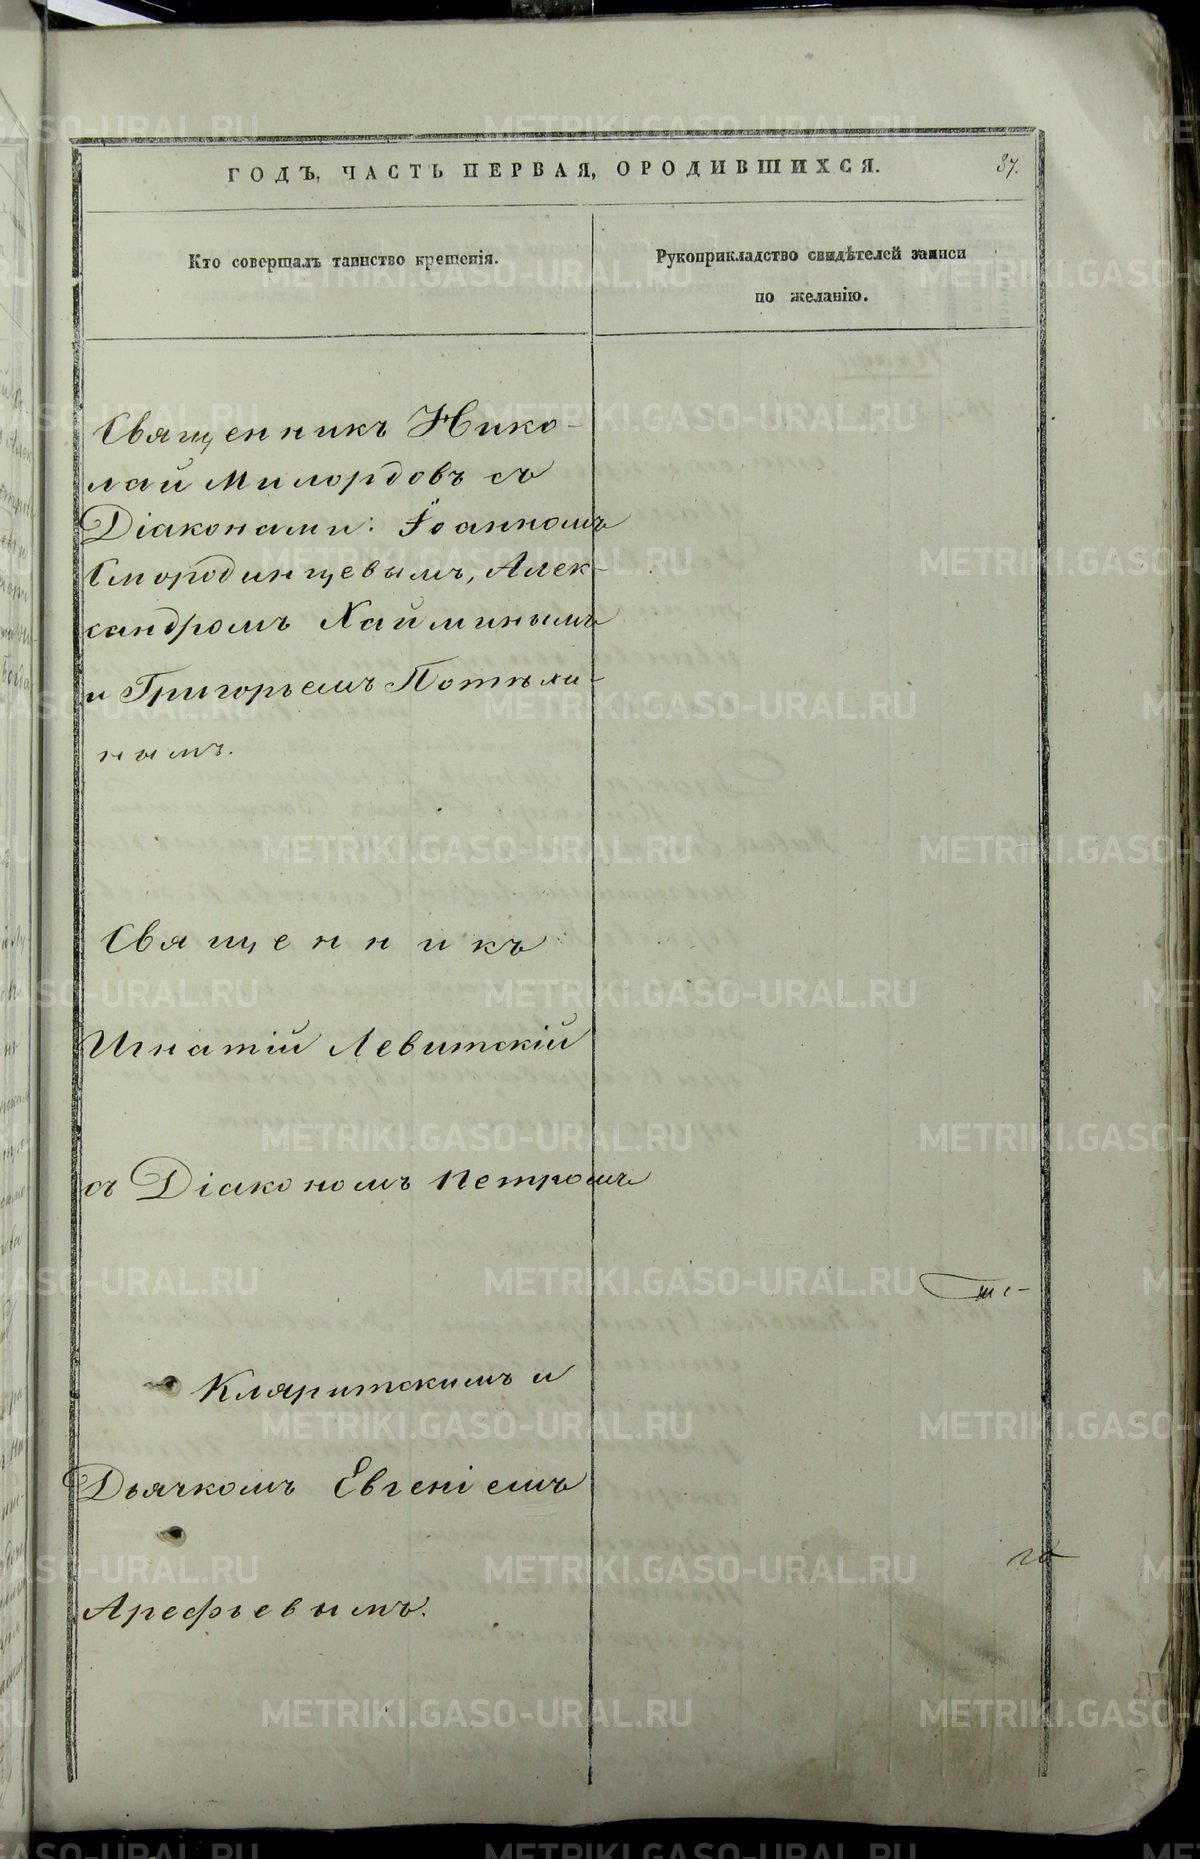 ГОДЪ, ЧАСТЬ ПЕРВАЯ, О РОДИВШИХСЯ. 87.
Кто совершалъ таинство крещенія.
Рукоприкладство свидѣтелей записи
по желанію.
Священникъ Нико-
лай Милордовъ съ
Діаконами: Іоанномъ
Смородинцевымъ, Алек-
сандромъ Хайминымъ
и Григорьемъ Потѣхи-
нымъ.
Священникъ
Игнатій Левитскій
съ Діакономъ Петромъ
Кляритскимъ и
Дьячкомъ Евгеніемъ
Арефьевымъ.
METRIKI.GASO-URAL.RU